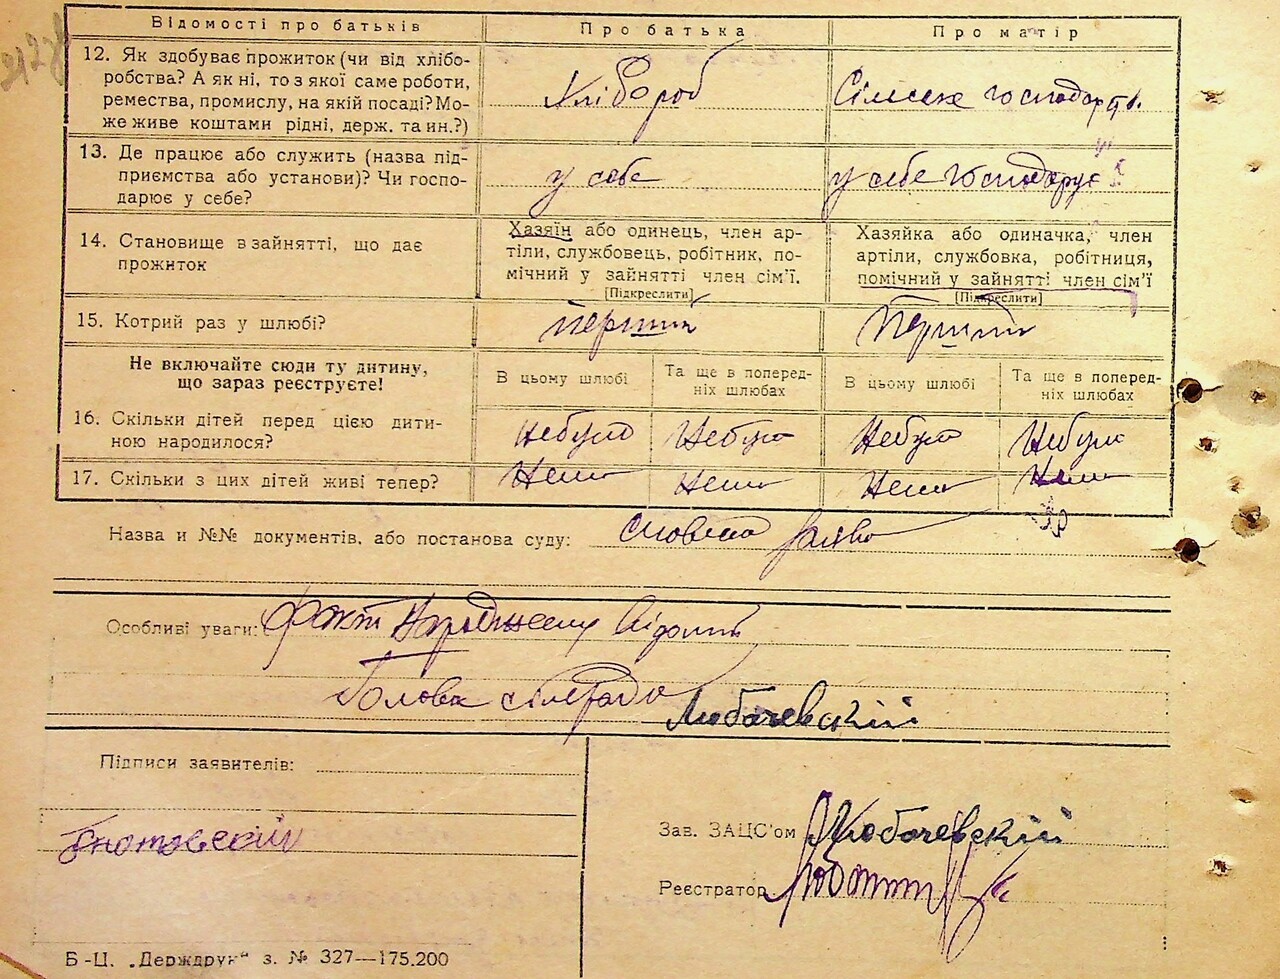 Відомості про батьків
Про батька
Про матір
12. Як здобуває прожиток (чи від хлібо-
робства? А як ні, то з якої саме роботи,
ремества, промислу, на якій посаді? Мо-
же живе коштами рідні, держ. та ин.?)
Хлібороб
Сільське господарств.
13. Де працює або служить (назва під-
приємства або установи)? Чи госпо-
дарює у себе?
у себе
у себе господарує
14. Становище в зайнятті, що дає
прожиток
Хазяїн або одинець, член ар-
тіли, службовець, робітник, по-
мічний у зайнятті член сім'ї.
[Підкреслити]
Хазяйка або одиначка, член
артіли, службовка, робітниця,
помічний у зайнятті член сім'ї
[Підкреслити]
15. Котрий раз у шлюбі?
Перший
Перший
Не включайте сюди ту дитину,
що зараз реєструєте!
В цьому шлюбі
Та ще в поперед-
ніх шлюбах
В цьому шлюбі
Та ще в поперед-
ніх шлюбах
16. Скільки дітей перед цією дити-
ною народилося?
Небуло
Небуло
Небуло
Небуло
17. Скільки з цих дітей живі тепер?
Нема
Нема
Нема
Нема
Назва и №№ документів, або постанова суду:
словесна заява
Особливі уваги:
Факт народження відомий
Голова сільради
Любачевский
Підписи заявителів:
Зав. ЗАЦС'ом
Любачевский
Реєстратор
Б-Ц. „Держдрук“ з. № 327—175.200